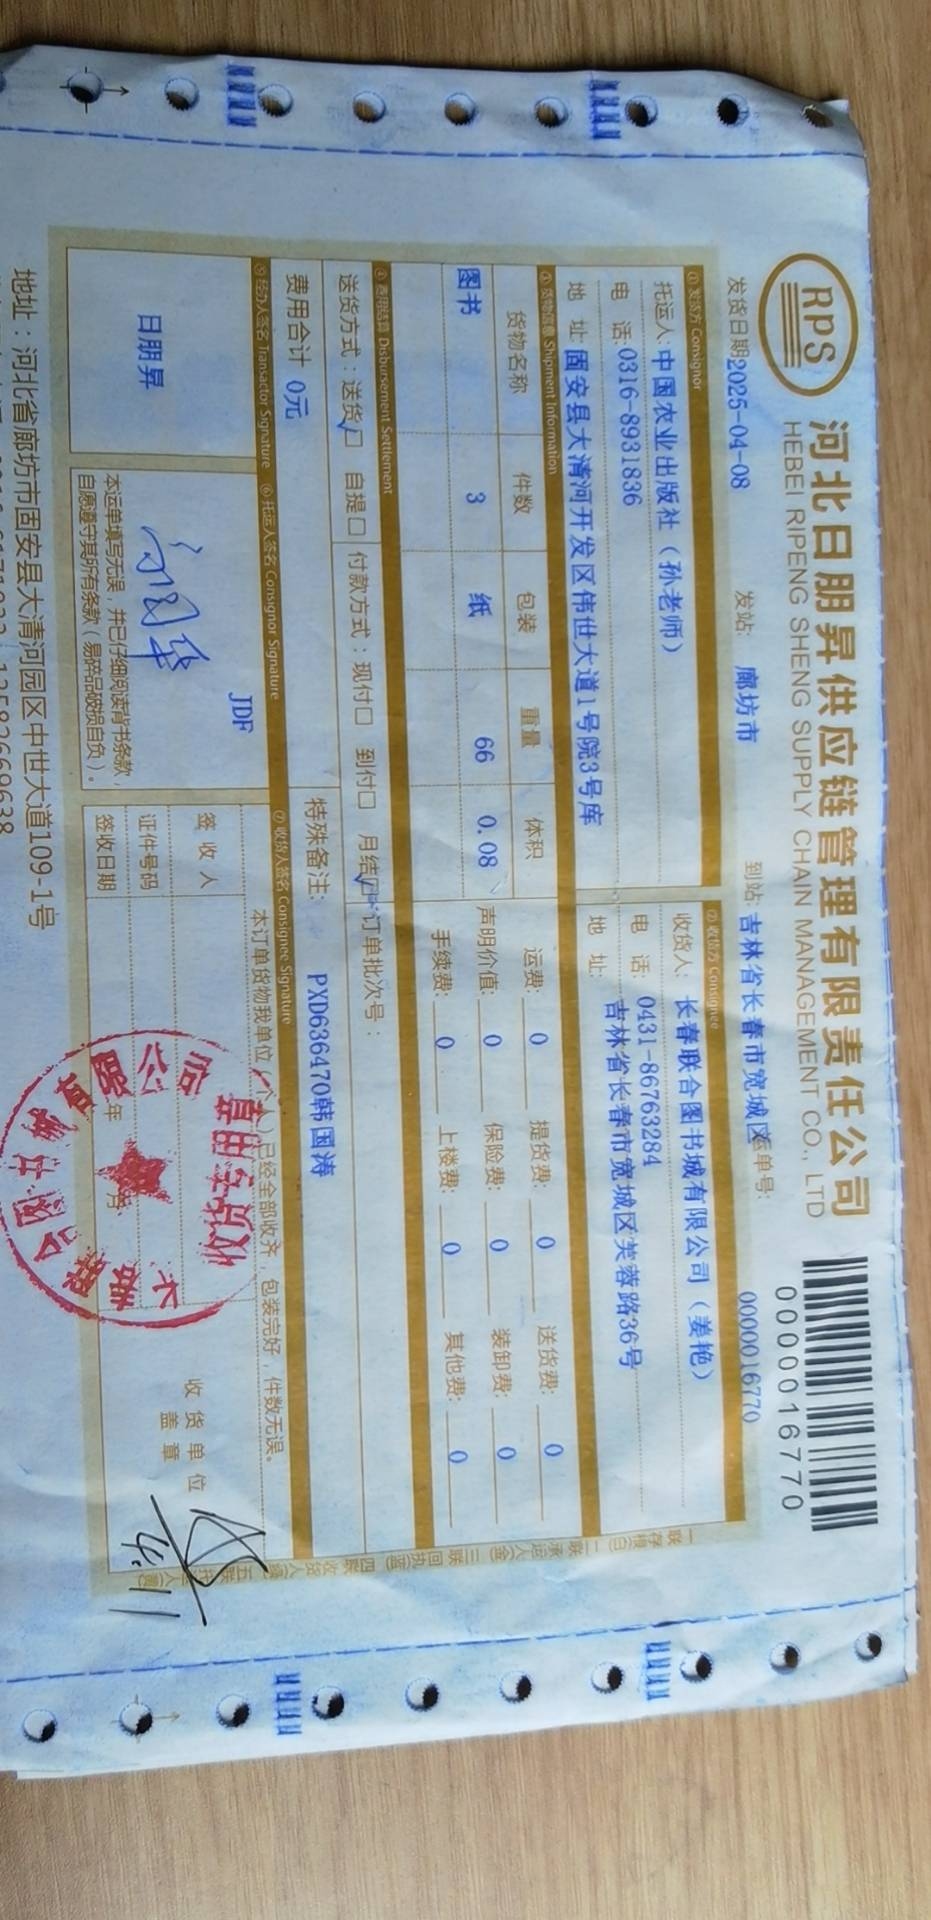 RPS
河北日朋昇供应链管理有限责任公司
HEBEI RIPENG SHENG SUPPLY CHAIN MANAGEMENT CO., LTD
0000016770
发货日期2025-04-08 发站: 廊坊市 到站: 吉林省长春市宽城区运单号: 0000016770
①发货方 Consignor
托运人: 中国农业出版社（孙老师）
电 话: 0316-8931836
地 址: 固安县大清河开发区伟世大道1号院3号库
②收货方 Consignee
收货人: 长春联合图书城有限公司（姜艳）
电 话: 0431-86763284
地 址: 吉林省长春市宽城区芙蓉路36号
③货物信息 Shipment Information
货物名称 件数 包装 重量 体积
图书 3 纸 66 0.08
运费: 0 提货费: 0 送货费: 0
声明价值: 0 保险费: 0 装卸费: 0
手续费: 0 上楼费: 0 其他费: 0
④费用结算 Disbursement Settlement
送货方式：送货☑ 自提☐ 付款方式：现付☐ 到付☐ 月结☑ 订单批次号：
费用合计 0元
特殊备注: PXD636470韩国涛
⑤经办人签名 Transactor Signature
日朋昇
⑥托运人签名 Consignor Signature
JDF
本运单填写无误，并已仔细阅读背书条款，
自愿遵守其所有条款（易碎品破损自负）。
⑦收货人签名 Consignee Signature
本订单货物我单位（个人）已经全部收齐，包装完好，件数无误。
签 收 人
证件号码
签收日期 年 月
收货单位
盖 章
收货专用章
地址：河北省廊坊市固安县大清河园区中世大道109-1号